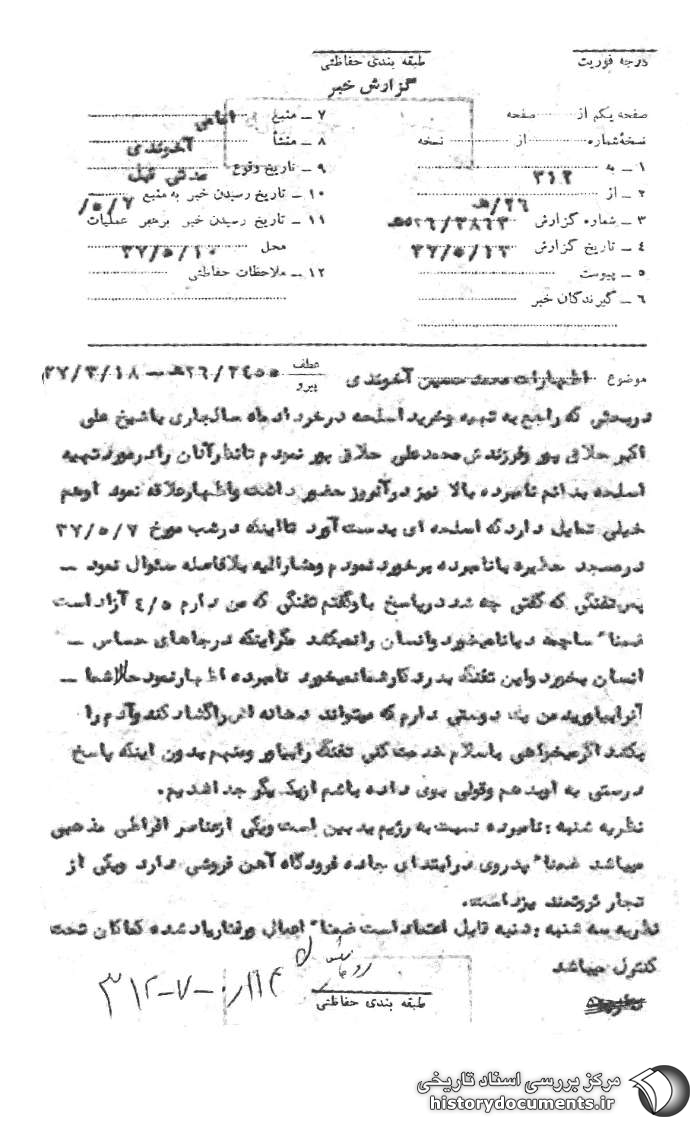 درجه فوریت
طبقه بندی حفاظتی
گزارش خبر
صفحه یکم از صفحه
نسخه شماره از نسخه
۱ ـ به ۳۱۲
۲ ـ از ۲۶/هـ
۳ ـ شماره گزارش ۵۲۶/۳۸۶۳هـ
۴ ـ تاریخ گزارش ۳۷/۵/۱۳
۵ ـ پیوست
۶ ـ گیرندگان خبر
۷ ـ منبع
۸ ـ منشأ آخوندی
۹ ـ تاریخ وقوع مدتی قبل
۱۰ ـ تاریخ رسیدن خبر به منبع ۵/۷/
۱۱ ـ تاریخ رسیدن خبر برهبر عملیات
محل ۳۷/۵/۱۰
۱۲ ـ ملاحظات حفاظتی
موضوع اظهارات محمد حسین آخوندی عطف پیرو ۲۶/۲۴۵۵هـ ـ ۲۷/۳/۱۸
دربحثی که راجع به تهیه وخرید اسلحه درخرداد ماه سالجاری باشیخ علی
اکبر حلاق پور وفرزندش محمدعلی حلاق پور نمودم تانظرآنان رادرمورد تهیه
اسلحه بدانم نامبرده بالا نیز درآنروز حضور داشت واظهارعلاقه نمود اوهم
خیلی تمایل دارد که اسلحه ای بدست آورد تااینکه درشب مورخ ۳۷/۵/۷
درمسجد حظیره بانامبرده برخورد نمودم ومشارالیه بلافاصله سئوال نمود ـ
پس تفنگی که گفتی چه شد درپاسخ باوگفتم تفنگی که من دارم ۴/۵ آزاد است
ضمنا" ساچمه دیانامیخورد وانسان رانمیکشد مگراینکه درجاهای حساس ـ
انسان بخورد واین تفنگ بدرد کارشمانمیخورد نامبرده اظهارنمود حالاشما ـ
آنرابیاورید من یک دوستی دارم که میتواند دهانه اش راگشاد کند وآدم را
بکشد اگرمیخواهی باسلام خدمت کنی تفنگ رابیاور ومنهم بدون اینکه پاسخ
درستی به اوبدهم وقولی بوی داده باشم ازیکدیگر جداشدیم.
نظریه شنبه : نامبرده نسبت به رژیم بدبین است ویکی ازعناصر افراطی مذهبی
میباشد ضمنا" پدروی درابتدای جاده فرودگاه آهن فروشی دارد ویکی از
تجار ثروتمند یزداست.
نظریه سه شنبه : شنبه قابل اعتماد است ضمنا" اعمال ورفتاریادشده کماکان تحت
کنترل میباشد
طبقه بندی حفاظتی
مرکز بررسی اسناد تاریخی
historydocuments.ir